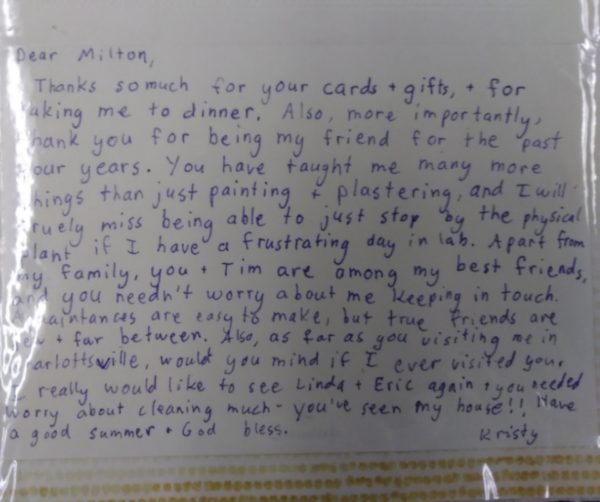 Dear Milton,
Thanks so much for your cards + gifts, + for
taking me to dinner. Also, more importantly,
thank you for being my friend for the past
four years. You have taught me many more
things than just painting + plastering, and I will
truely miss being able to just stop by the physical
plant if I have a frustrating day in lab. Apart from
my family, you + Tim are among my best friends,
and you needn't worry about me keeping in touch.
are easy to make, but true friends are
few + far between. Also, as far as you visiting me in
Charlottsville, would you mind if I ever visited you.
I really would like to see Linda + Eric again + you needed
worry about cleaning much - you've seen my house!! Have
a good summer + God bless.
Kristy